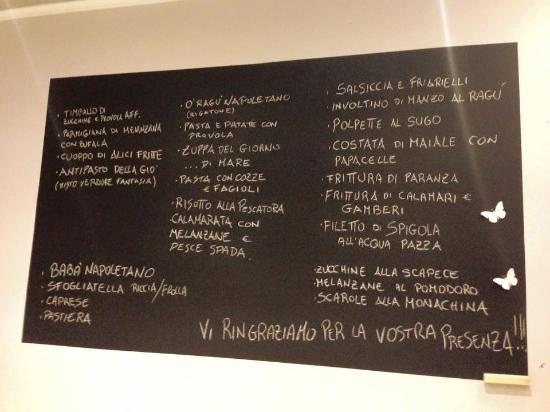 · TIMBALLO DI
ZUCCHINE E PROVOLA AFF.
· PARMIGIANA DI MELANZANA
CON BUFALA
· CUOPPO DI ALICI FRITTE
· ANTIPASTO DELLA GIO'
(MISTO VERDURE FANTASIA)
· O'RAGU' NAPOLETANO
(RIGATONE)
· PASTA E PATATE CON
PROVOLA
· ZUPPA DEL GIORNO
... DI MARE
· PASTA CON COZZE
E FAGIOLI
· RISOTTO ALLA PESCATORA
· CALAMARATA CON
MELANZANE E
PESCE SPADA.
· SALSICCIA E FRIARIELLI
· INVOLTINO DI MANZO AL RAGU'
· POLPETTE AL SUGO
· COSTATA DI MAIALE CON
PAPACELLE
· FRITTURA DI PARANZA
· FRITTURA DI CALAMARI E
GAMBERI
· FILETTO DI SPIGOLA
ALL'ACQUA PAZZA
· BABA' NAPOLETANO
· SFOGLIATELLA RICCIA/FROLLA
· CAPRESE
· PASTIERA
· ZUCCHINE ALLA SCAPECE
· MELANZANE AL POMODORO
· SCAROLE ALLA MONACHINA
VI RINGRAZIAMO PER LA VOSTRA PRESENZA!!!